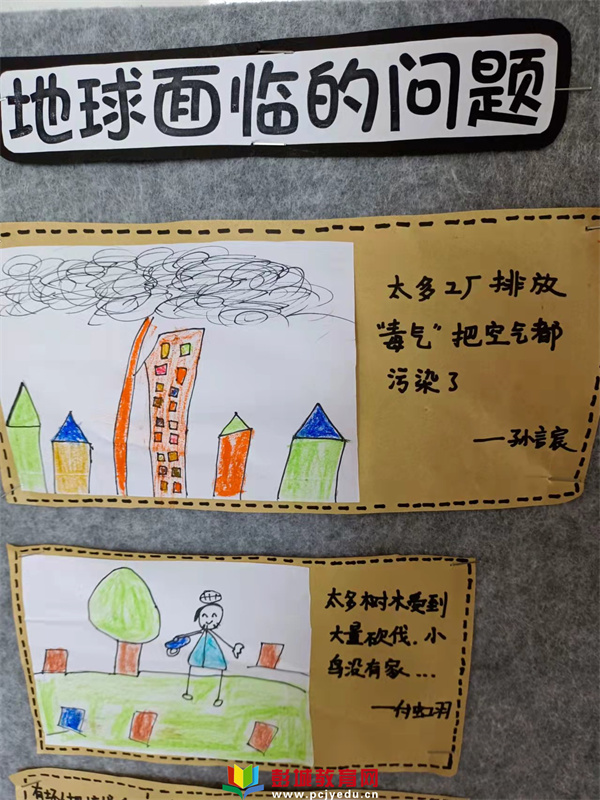 地球面临的问题
太多工厂排放
“毒气”把空气都
污染了
——孙言宸
太多树木受到
大量砍伐.小
鸟没有家...
彭城教育网
www.pcjyedu.cn